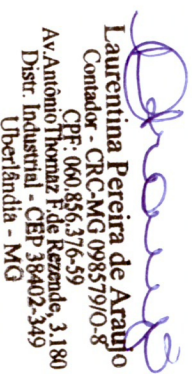 Laurentina Pereira de Araujo
Contador - CRC-MG 098579/O-8
CPF: 060.856.376-59
Av. Antônio Thomaz F. de Rezende, 3.180
Distr. Industrial - CEP 38402-349
Uberlândia - MG